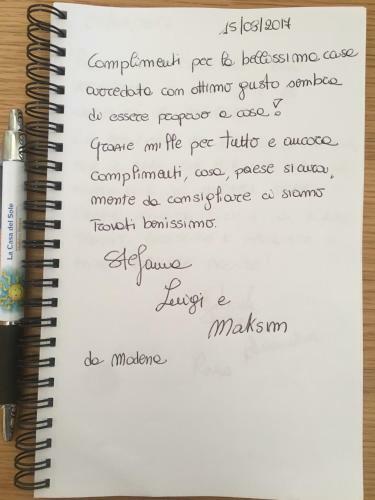 15/08/2017
Complimenti per la bellissima casa
arredata con ottimo gusto sembra
di essere proprio a casa!
Grazie mille per tutto e ancora
complimenti, casa, paese sicura,
mente da consigliare ci siamo
trovati benissimo.
Stefania
Luigi e
Maksim
da Modena
La Casa del Sole